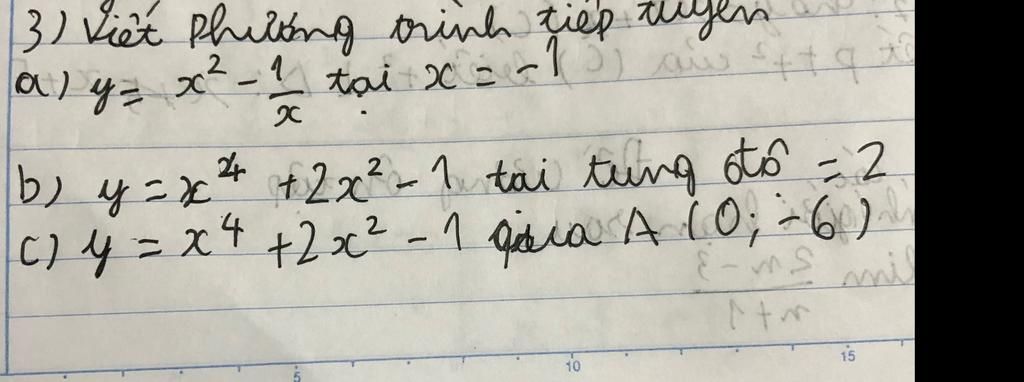 3) Viết phương trình tiếp tuyến
a) y = x² - 1/x tại x = -1
b) y = x⁴ + 2x² - 1 tại tung độ = 2
c) y = x⁴ + 2x² - 1 qua A (0; -6)
5 10 15